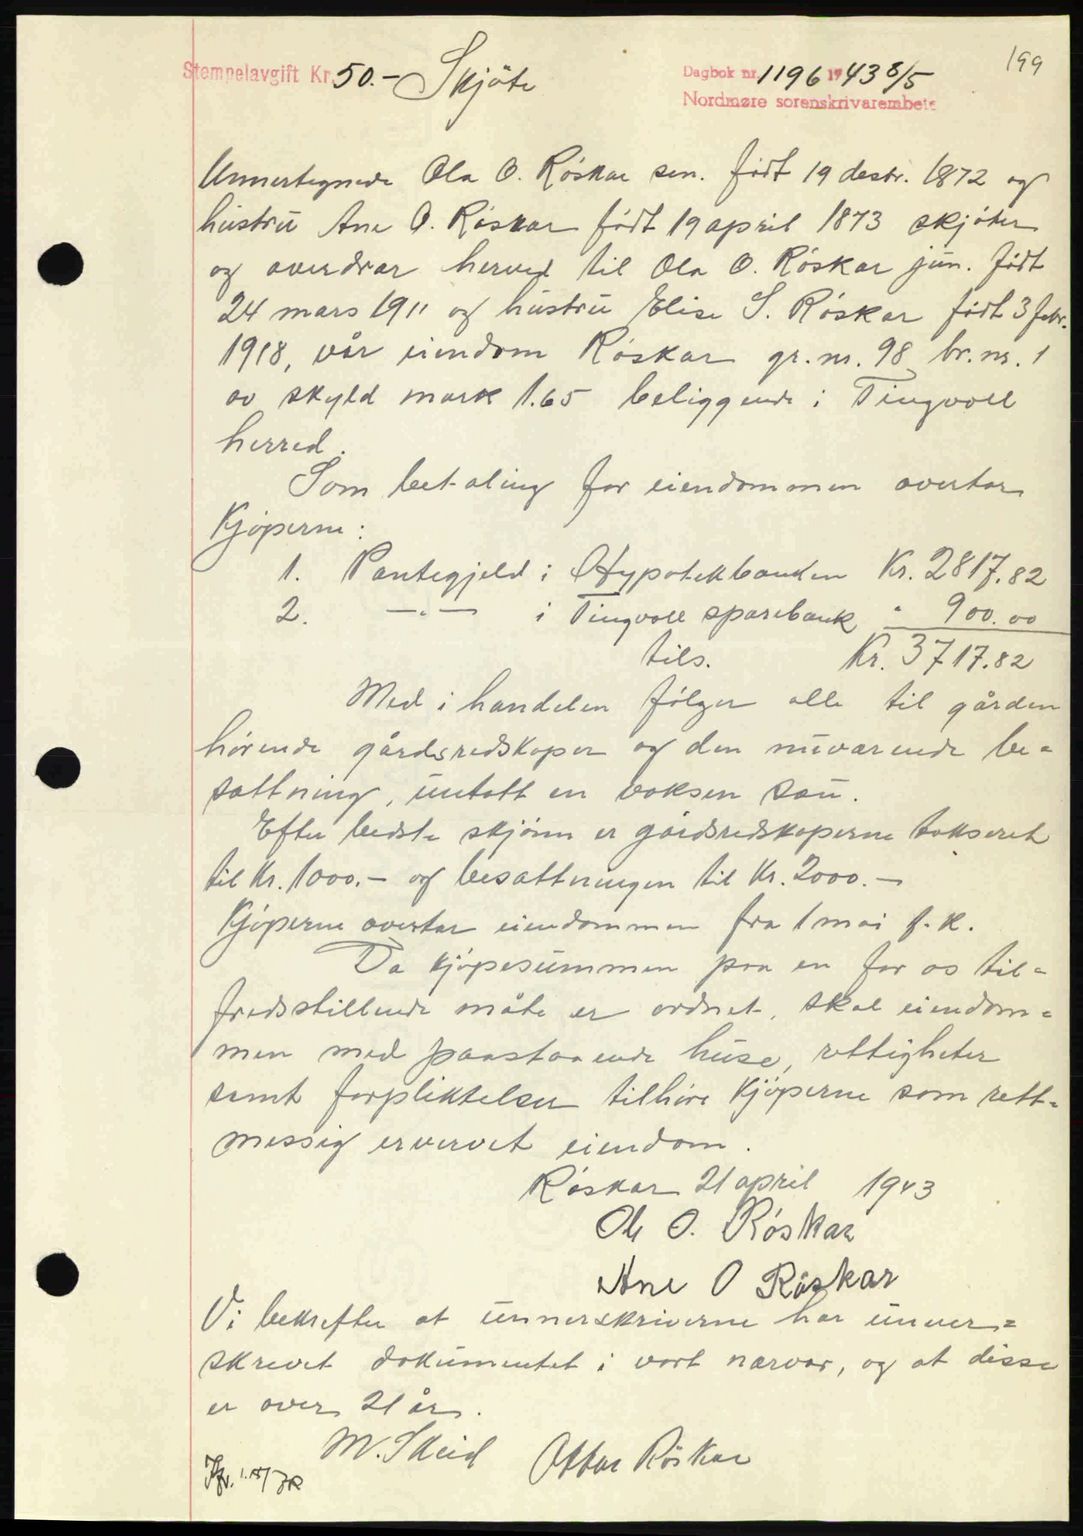 199
Stempelavgift Kr. 50.- Skjöte
Dagbok nr. 1196 1943 8/5
Nordmøre sorenskrivarembete
Unnertegnede Ola O. Röskar sen. födt 19 desbr. 1872 og
hustru Ane O. Röskar födt 19 april 1873 skjöter
og overdrar herved til Ola O. Röskar jun. födt
24 mars 1911 og hustru Elise S. Röskar födt 3 febr.
1918, vår eiendom Röskar gr. nr. 98 br. nr. 1
av skyld mark 1.65 beliggende i Tingvoll
herred.
Som betaling for eiendommen overtar
Kjöperne:
1. Pantegjeld i Hypotekbanken Kr. 2817.82
2. —"— i Tingvoll sparebank " 900.00
tils. Kr. 3717.82
Med i handelen fölger alle til gården
hörende gårdsredskaper og den nuværende be-
sættning, untatt en voksen sau.
Efter bedste skjönn er gårdsredskaperne taksert
til Kr. 1000.- og besættningen til Kr. 2000.-
Kjöperne overtar eiendommen fra 1 mai f. k.
Da kjöpesummen paa en for os til-
fredsstillende måte er ordnet, skal eiendom-
men med paastaaende huse, rettigheter
samt forpliktelser tilhöre Kjöperne som rett-
messig ervervet eiendom.
Röskar 21 april 1943
Ola O. Röskar
Ane O Röskar
Vi bekrefter at unnerskriverne har unner-
skrevet dokumentet i vort nærvær, og at disse
er over 21 år.
M. Skeid Ottar Röskar